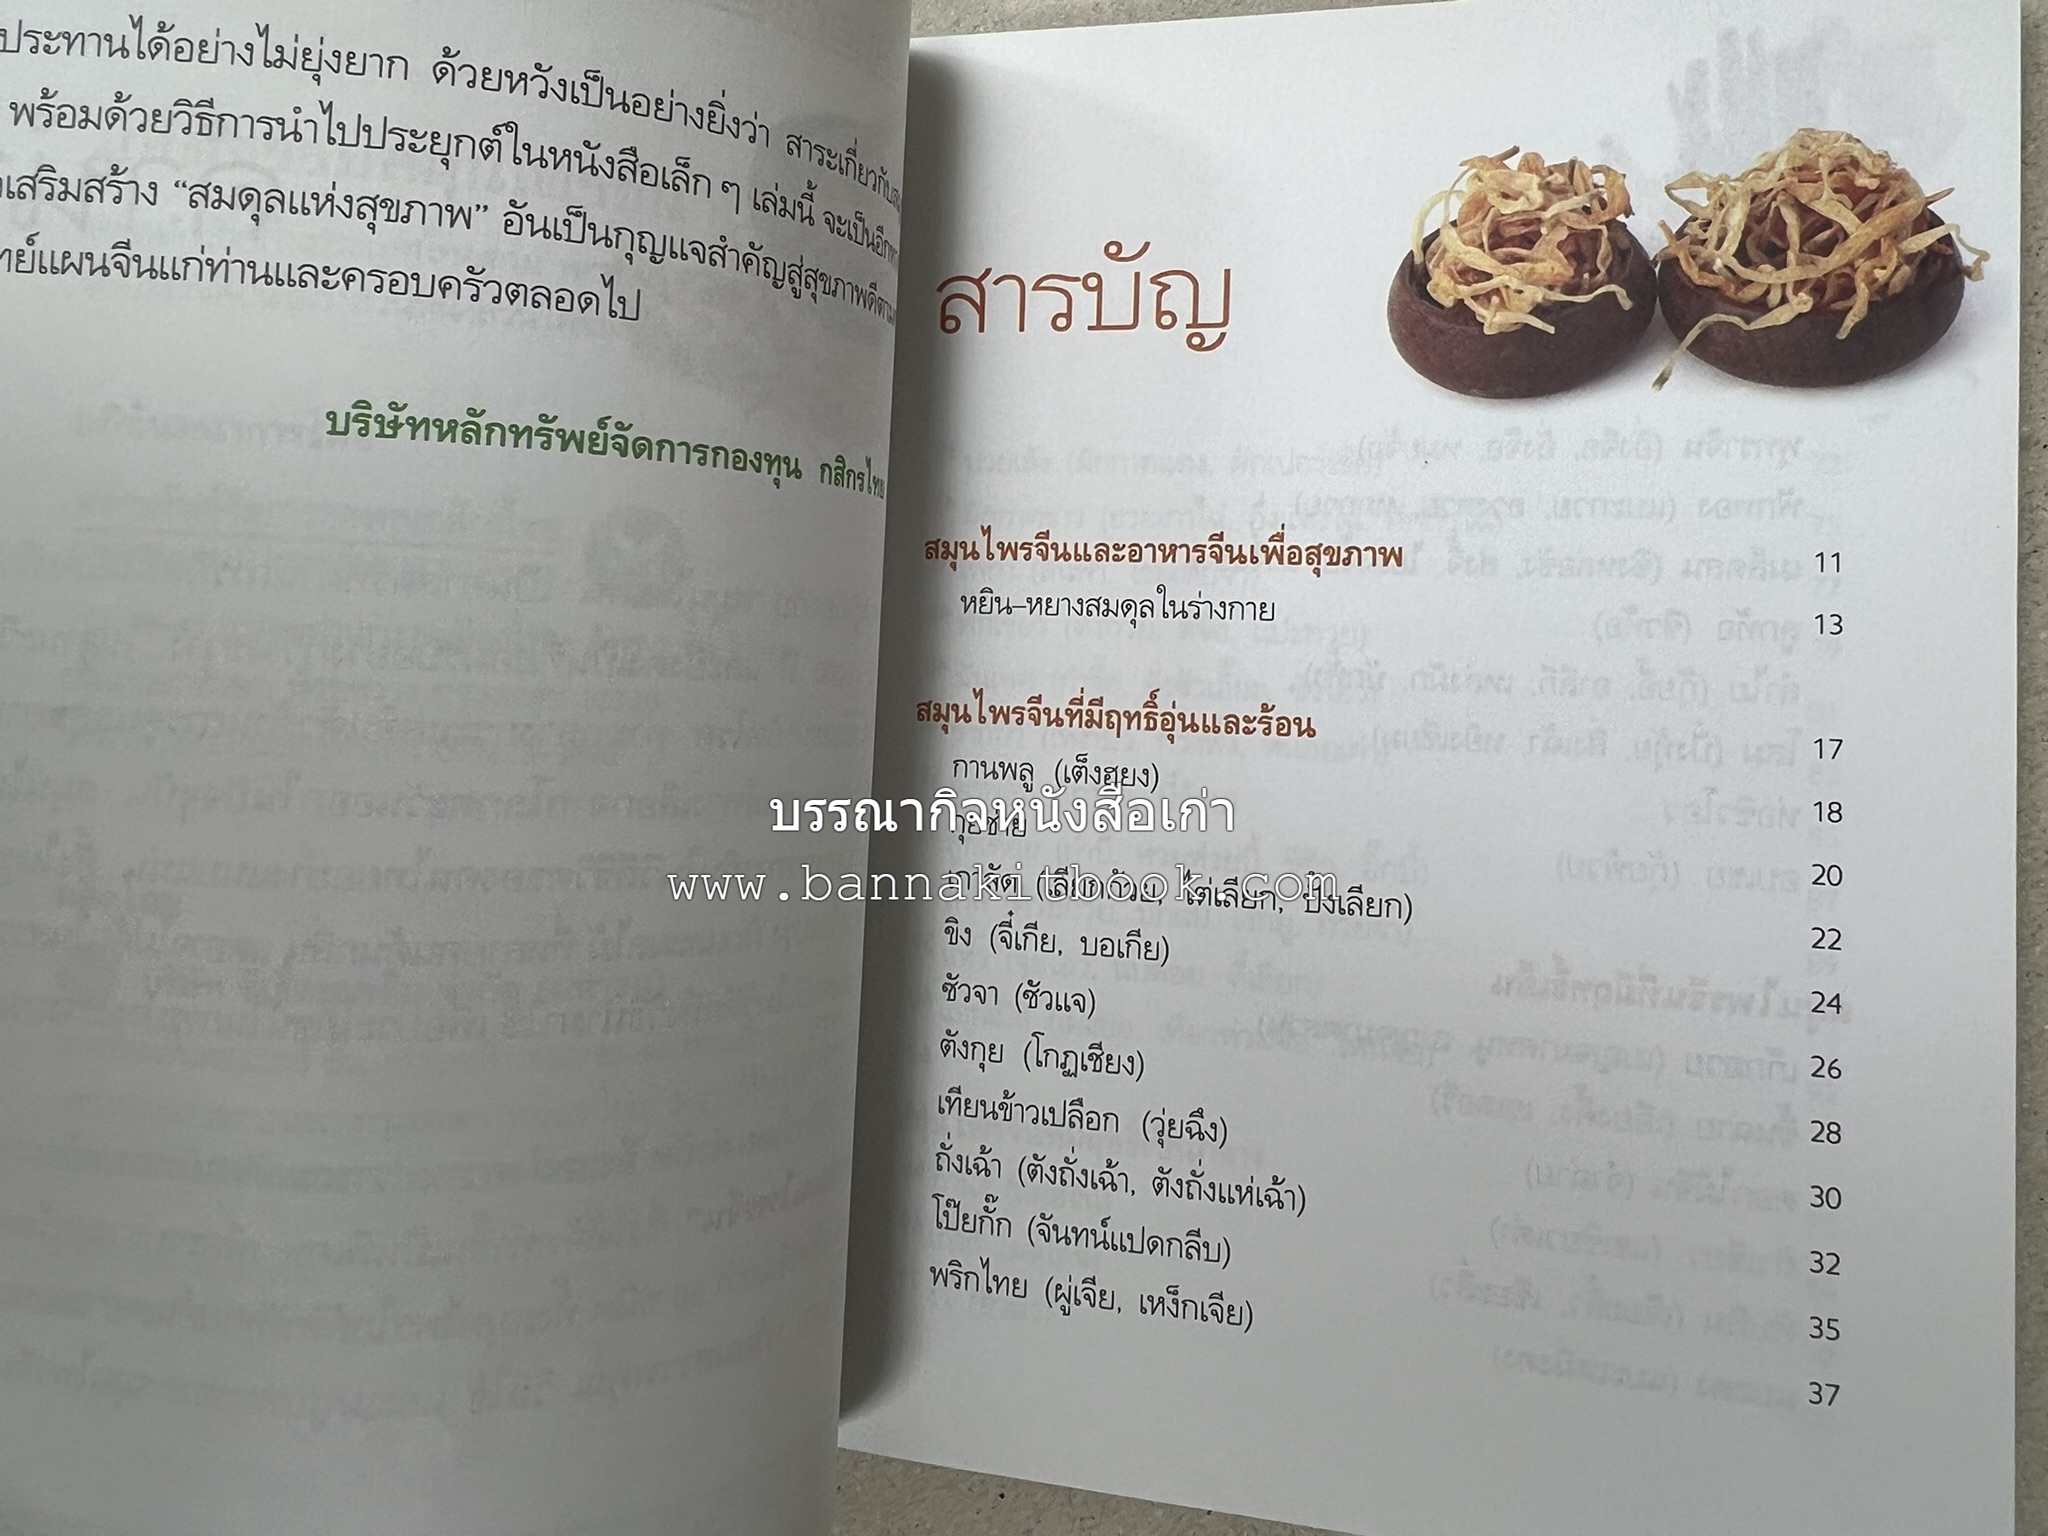 ประทานได้อย่างไม่ยุ่งยาก ด้วยหวังเป็นอย่างยิ่งว่า สาระเกี่ยวกับ
พร้อมด้วยวิธีการนำไปประยุกต์ในหนังสือเล็ก ๆ เล่มนี้ จะเป็นอีก
เสริมสร้าง “สมดุลแห่งสุขภาพ” อันเป็นกุญแจสำคัญสู่สุขภาพดีตาม
ทย์แผนจีนแก่ท่านและครอบครัวตลอดไป
บริษัทหลักทรัพย์จัดการกองทุน กสิกรไทย
สารบัญ
สมุนไพรจีนและอาหารจีนเพื่อสุขภาพ 11
หยิน–หยางสมดุลในร่างกาย 13
สมุนไพรจีนที่มีฤทธิ์อุ่นและร้อน 17
กานพลู (เต็งฮยง) 18
กุยช่าย 20
เกาลัด (เลียกก้วย, ไต่เลียก, ปังเลียก) 22
ขิง (จี๋เกีย, บอเกีย) 24
ซัวจา (ซัวแจ) 26
ตังกุย (โกฏเชียง) 28
เทียนข้าวเปลือก (วุ่ยฉึง) 30
ถั่งเฉ้า (ตังถั่งเฉ้า, ตังถั่งแห่เฉ้า) 32
โป๊ยกั๊ก (จันทน์แปดกลีบ) 35
พริกไทย (ผู่เจีย, เหง็กเจีย) 37
บรรณากิจหนังสือเก่า
www.bannakitbook.com